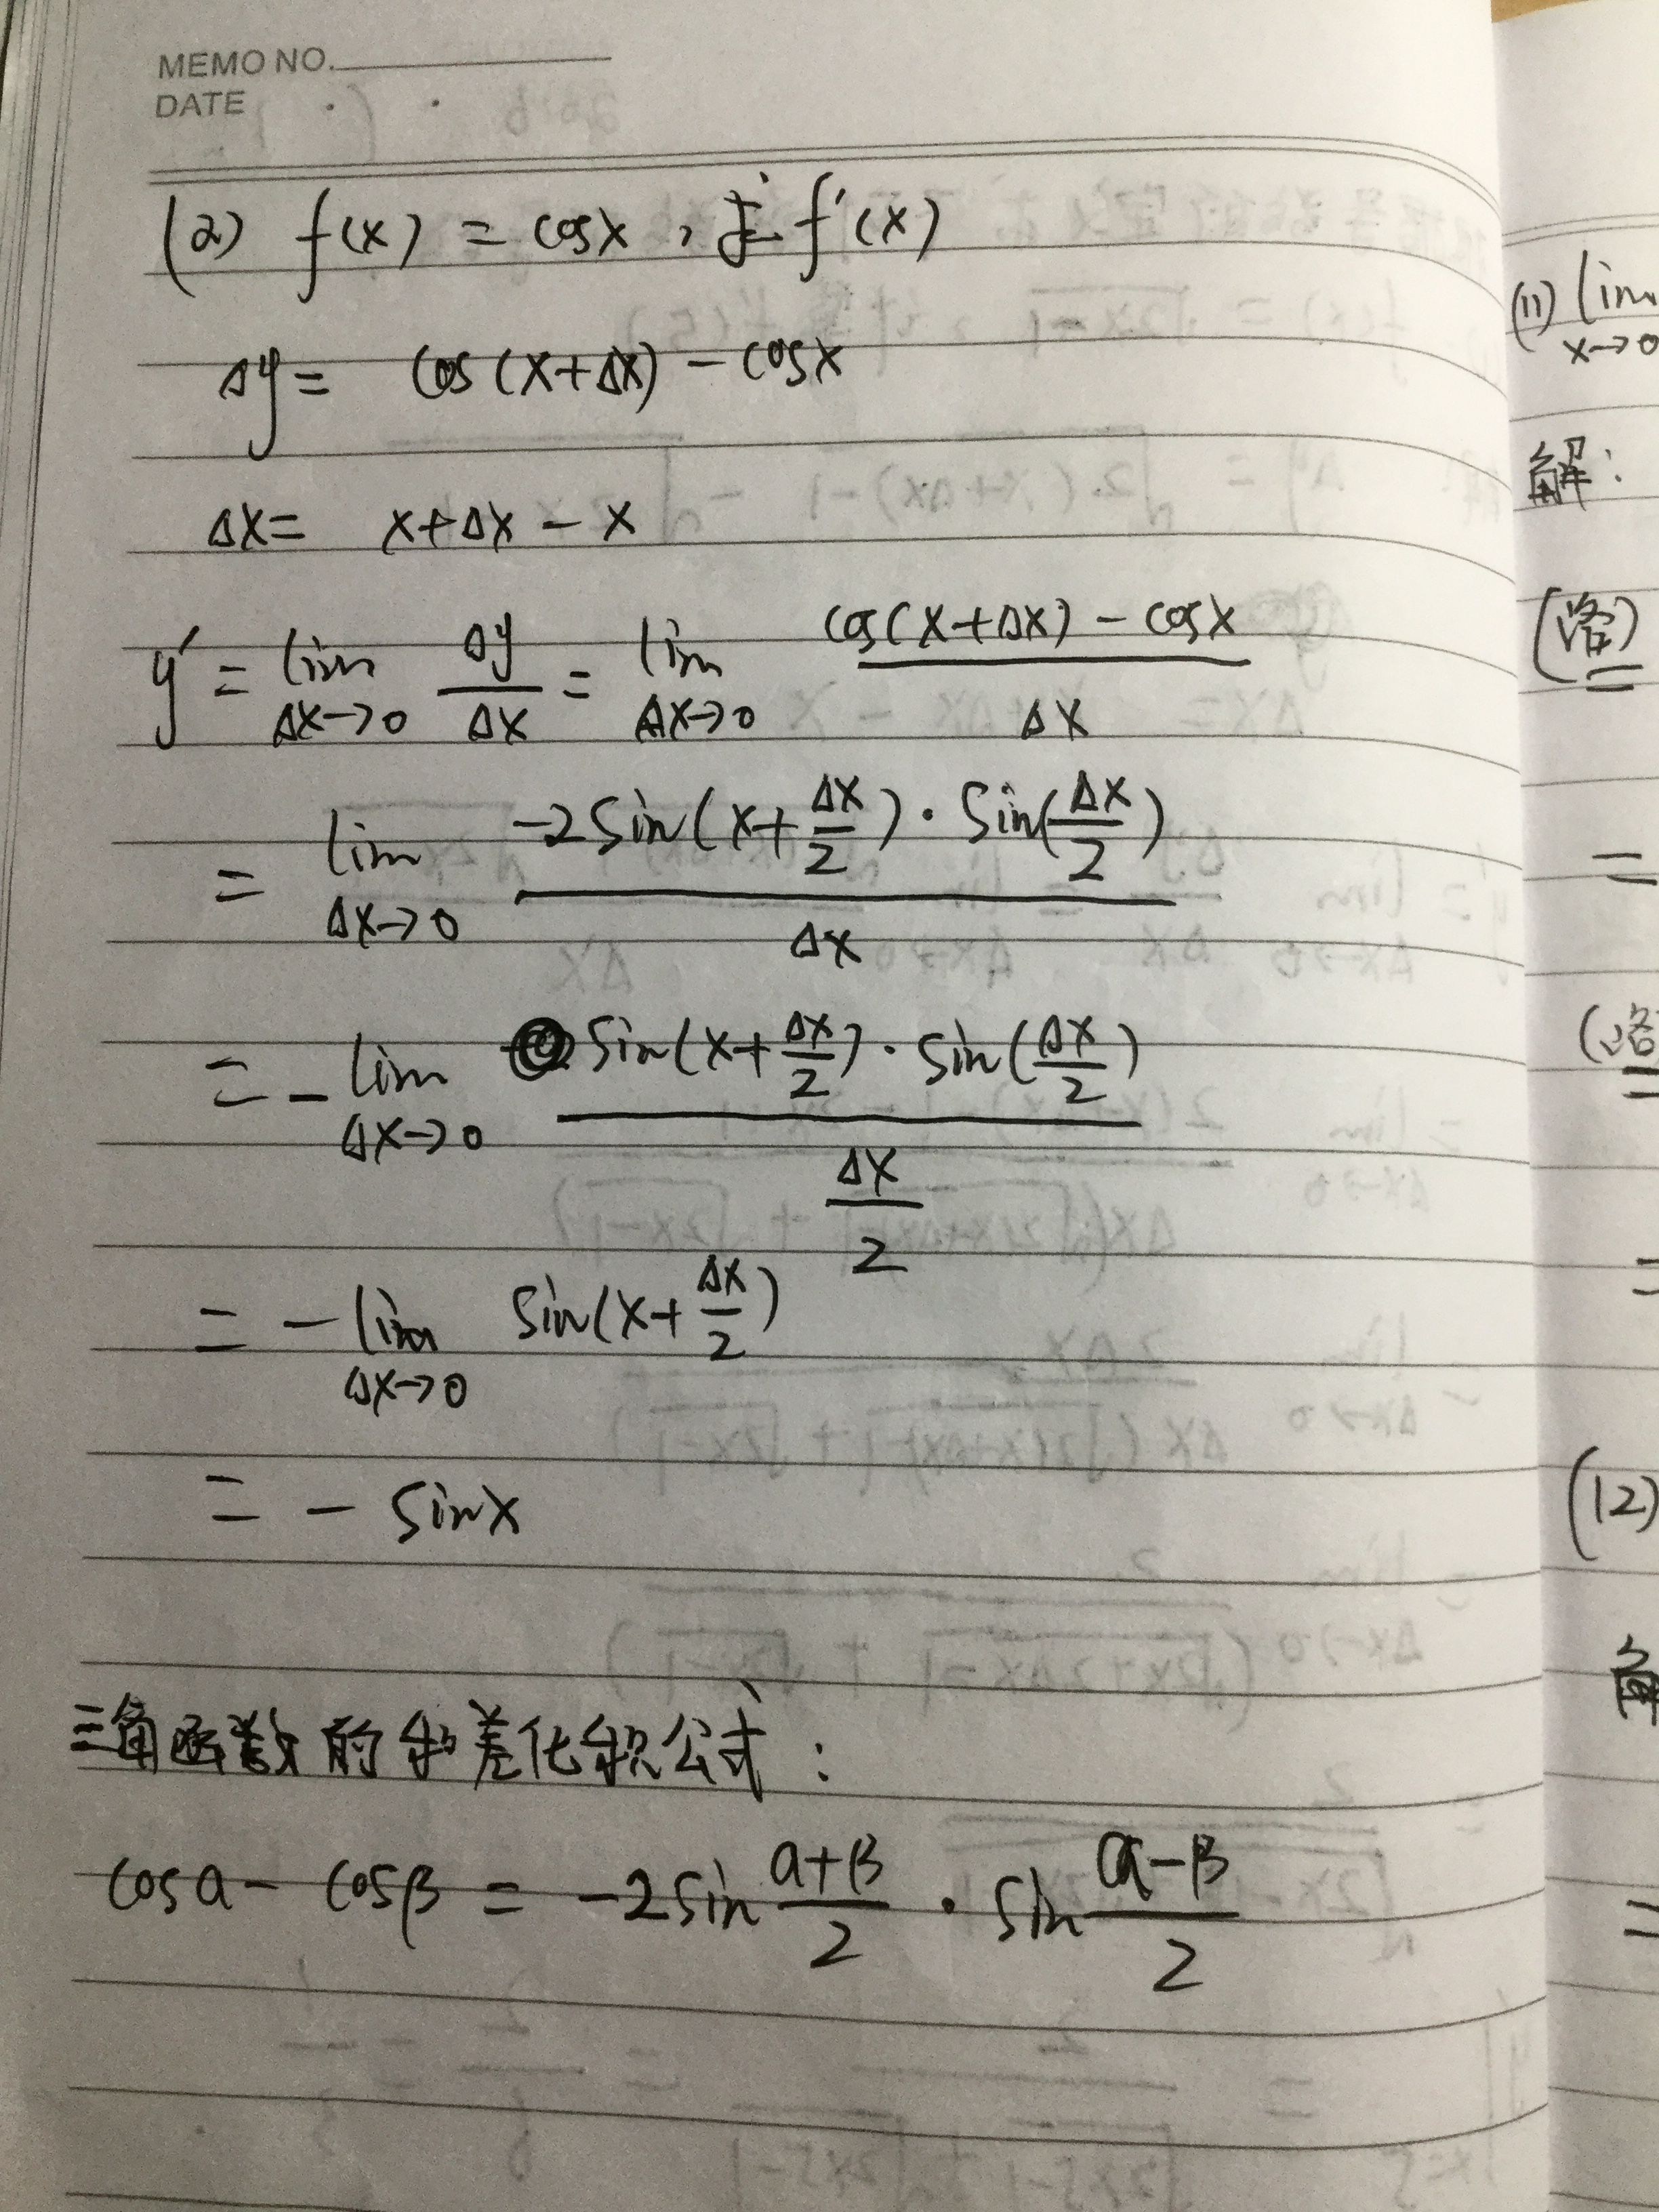 MEMO NO.
DATE . .
(2) f(x) = cosx , 求 f'(x)
Δy = cos(x+Δx) - cosx
Δx = x+Δx - x
y' = lim Δx→0 Δy/Δx = lim Δx→0 (cos(x+Δx) - cosx)/Δx
= lim Δx→0 (-2sin(x+Δx/2)·sin(Δx/2))/Δx
= - lim Δx→0 (sin(x+Δx/2)·sin(Δx/2))/(Δx/2)
= - lim Δx→0 sin(x+Δx/2)
= - sinx
三角函数的和差化积公式:
cosα - cosβ = -2sin (α+β)/2 · sin (α-β)/2
(11) lim x→0
解:
(洛)
=
=
(洛
=
=
(12)
解
=